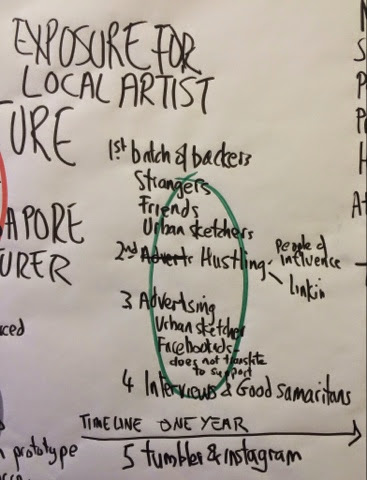 EXPOSURE FOR
LOCAL ARTIST
TURE
1st batch of backers
Strangers
Friends
Urban sketchers
2nd Adverts Hustling
People of
influence
Linkin
APORE
URER
3 Advertsing
Urban sketcher
Facebook ads
does not translate
to support
4 Interviews & Good Samaritans
TIMELINE ONE YEAR
5 tumbler & Instagram
prototype